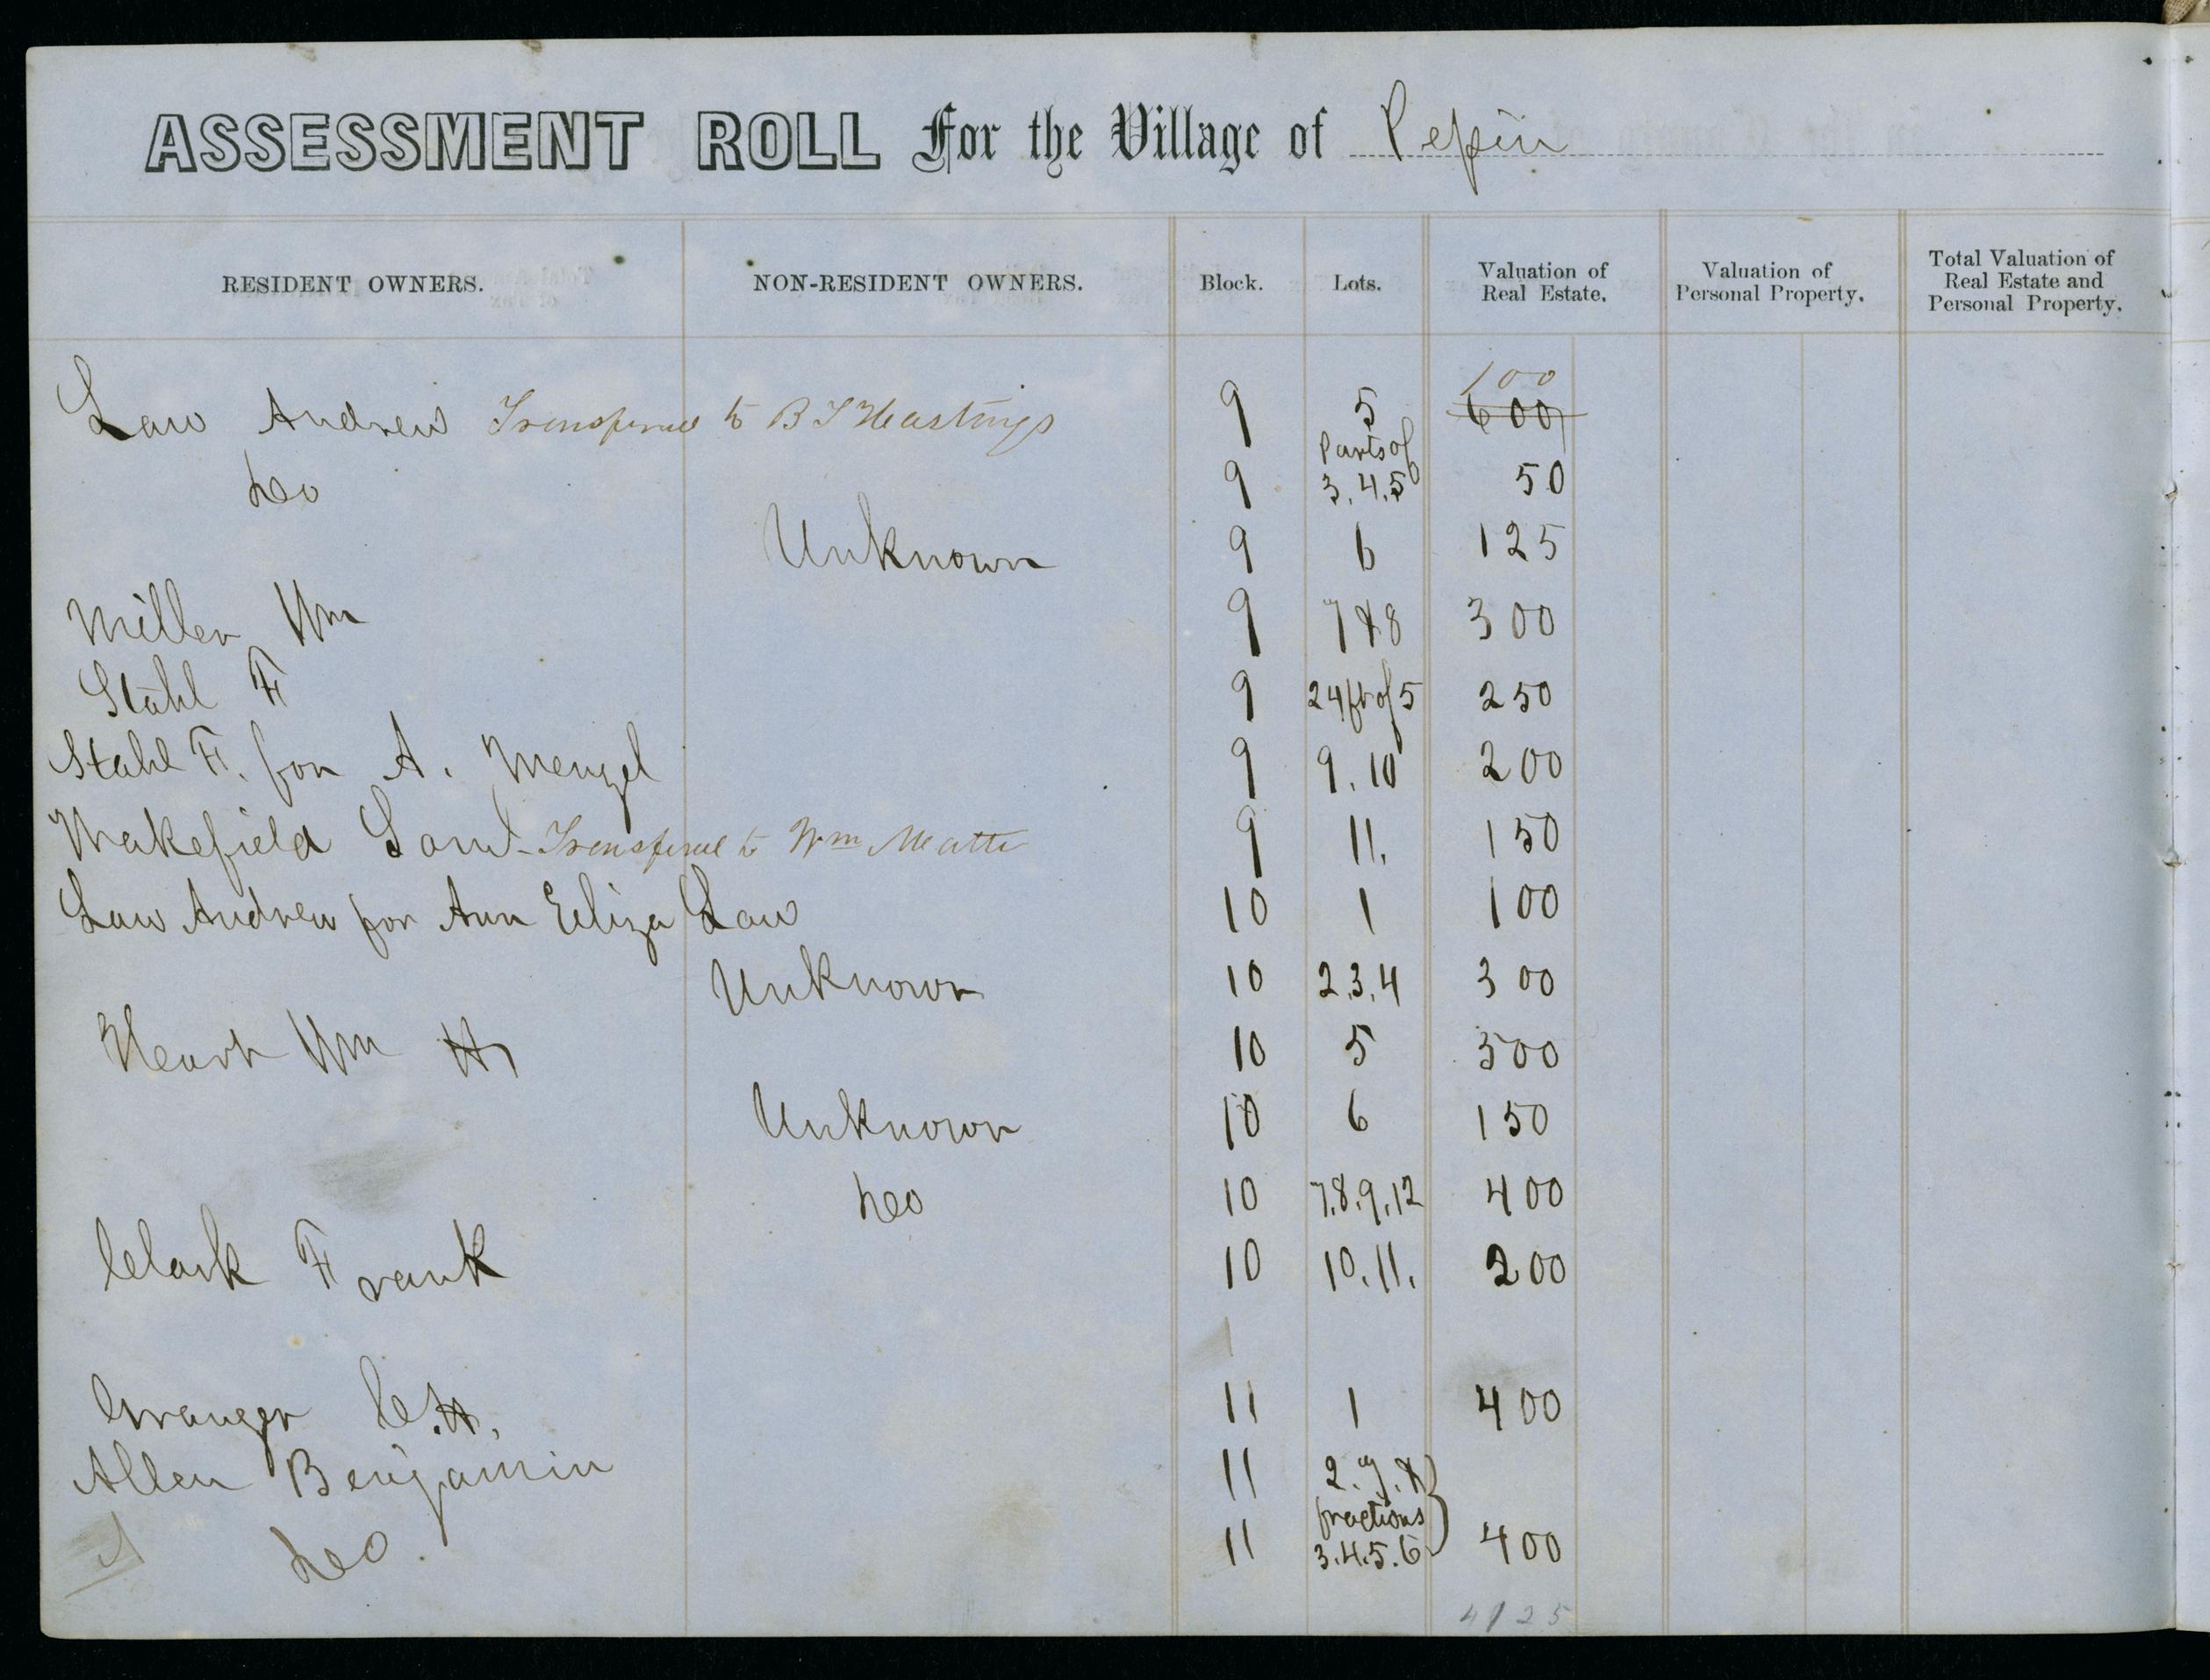 ASSESSMENT ROLL For the Village of Pepin
RESIDENT OWNERS. NON-RESIDENT OWNERS. Block. Lots. Valuation of Real Estate. Valuation of Personal Property. Total Valuation of Real Estate and Personal Property.
100
Law Andrew Transfered to B T Hastings 9 5 600
Do 9 Parts of 3.4.5 50
Unknown 9 6 125
Miller Wm 9 7 & 8 300
Stahl F 9 24 ft of 5 250
Stahl F. for A. Menzel 9 9.10 200
Wakefield Saml Transfered to Wm 9 11. 150
Law Andrew for Ann Eliza Law 10 1 100
Unknown 10 2.3.4 300
Wm H 10 5 500
Unknown 10 6 150
Do 10 7.8.9.12 400
Clark Frank 10 10.11. 200
Granger C.H. 11 1 400
Allen Benjamin 11 2.
Do. 11 fractions 3.4.5.6 400
4125